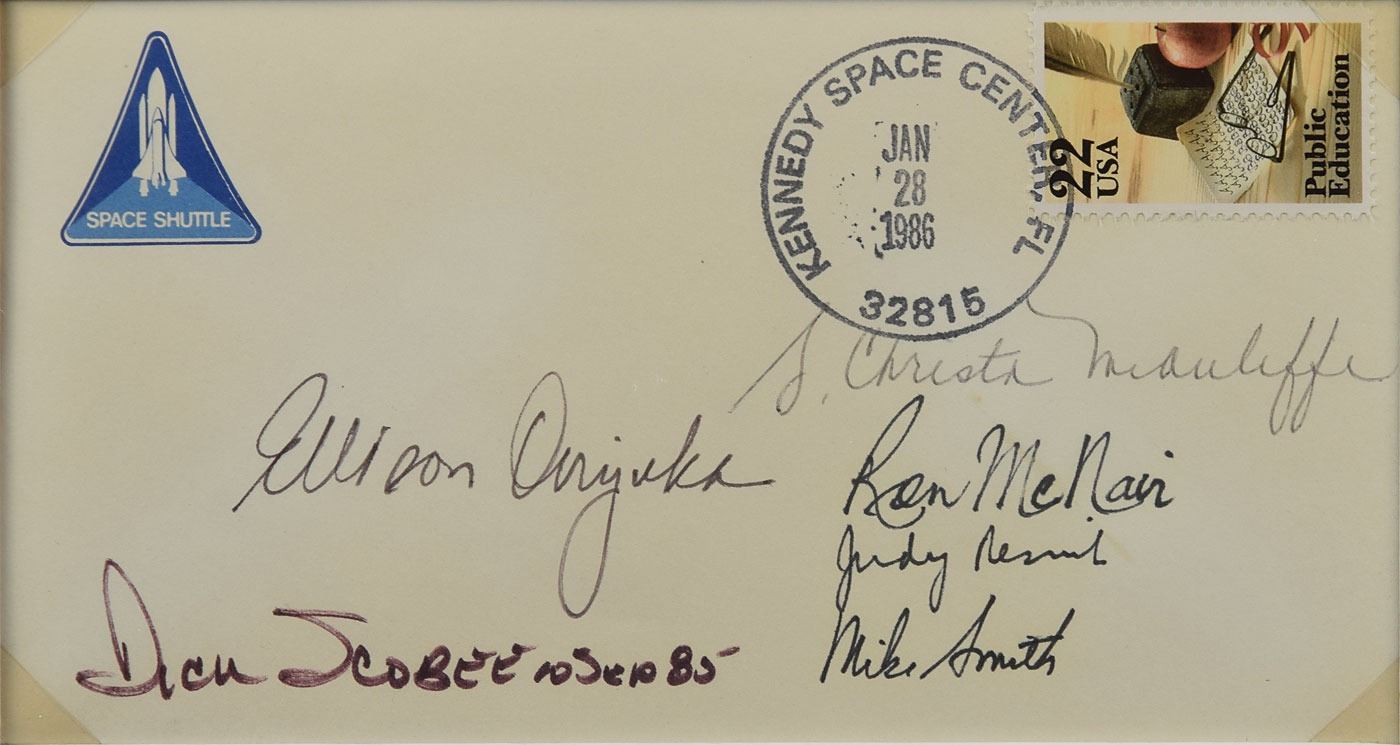 SPACE SHUTTLE
KENNEDY SPACE CENTER, FL
JAN
28
1986
32815
22
USA
Public
Education
S. Christa McAuliffe
Ellison Onizuka
Ron McNair
Judy Resnik
Dick Scobee 10 Sep 85
Mike Smith